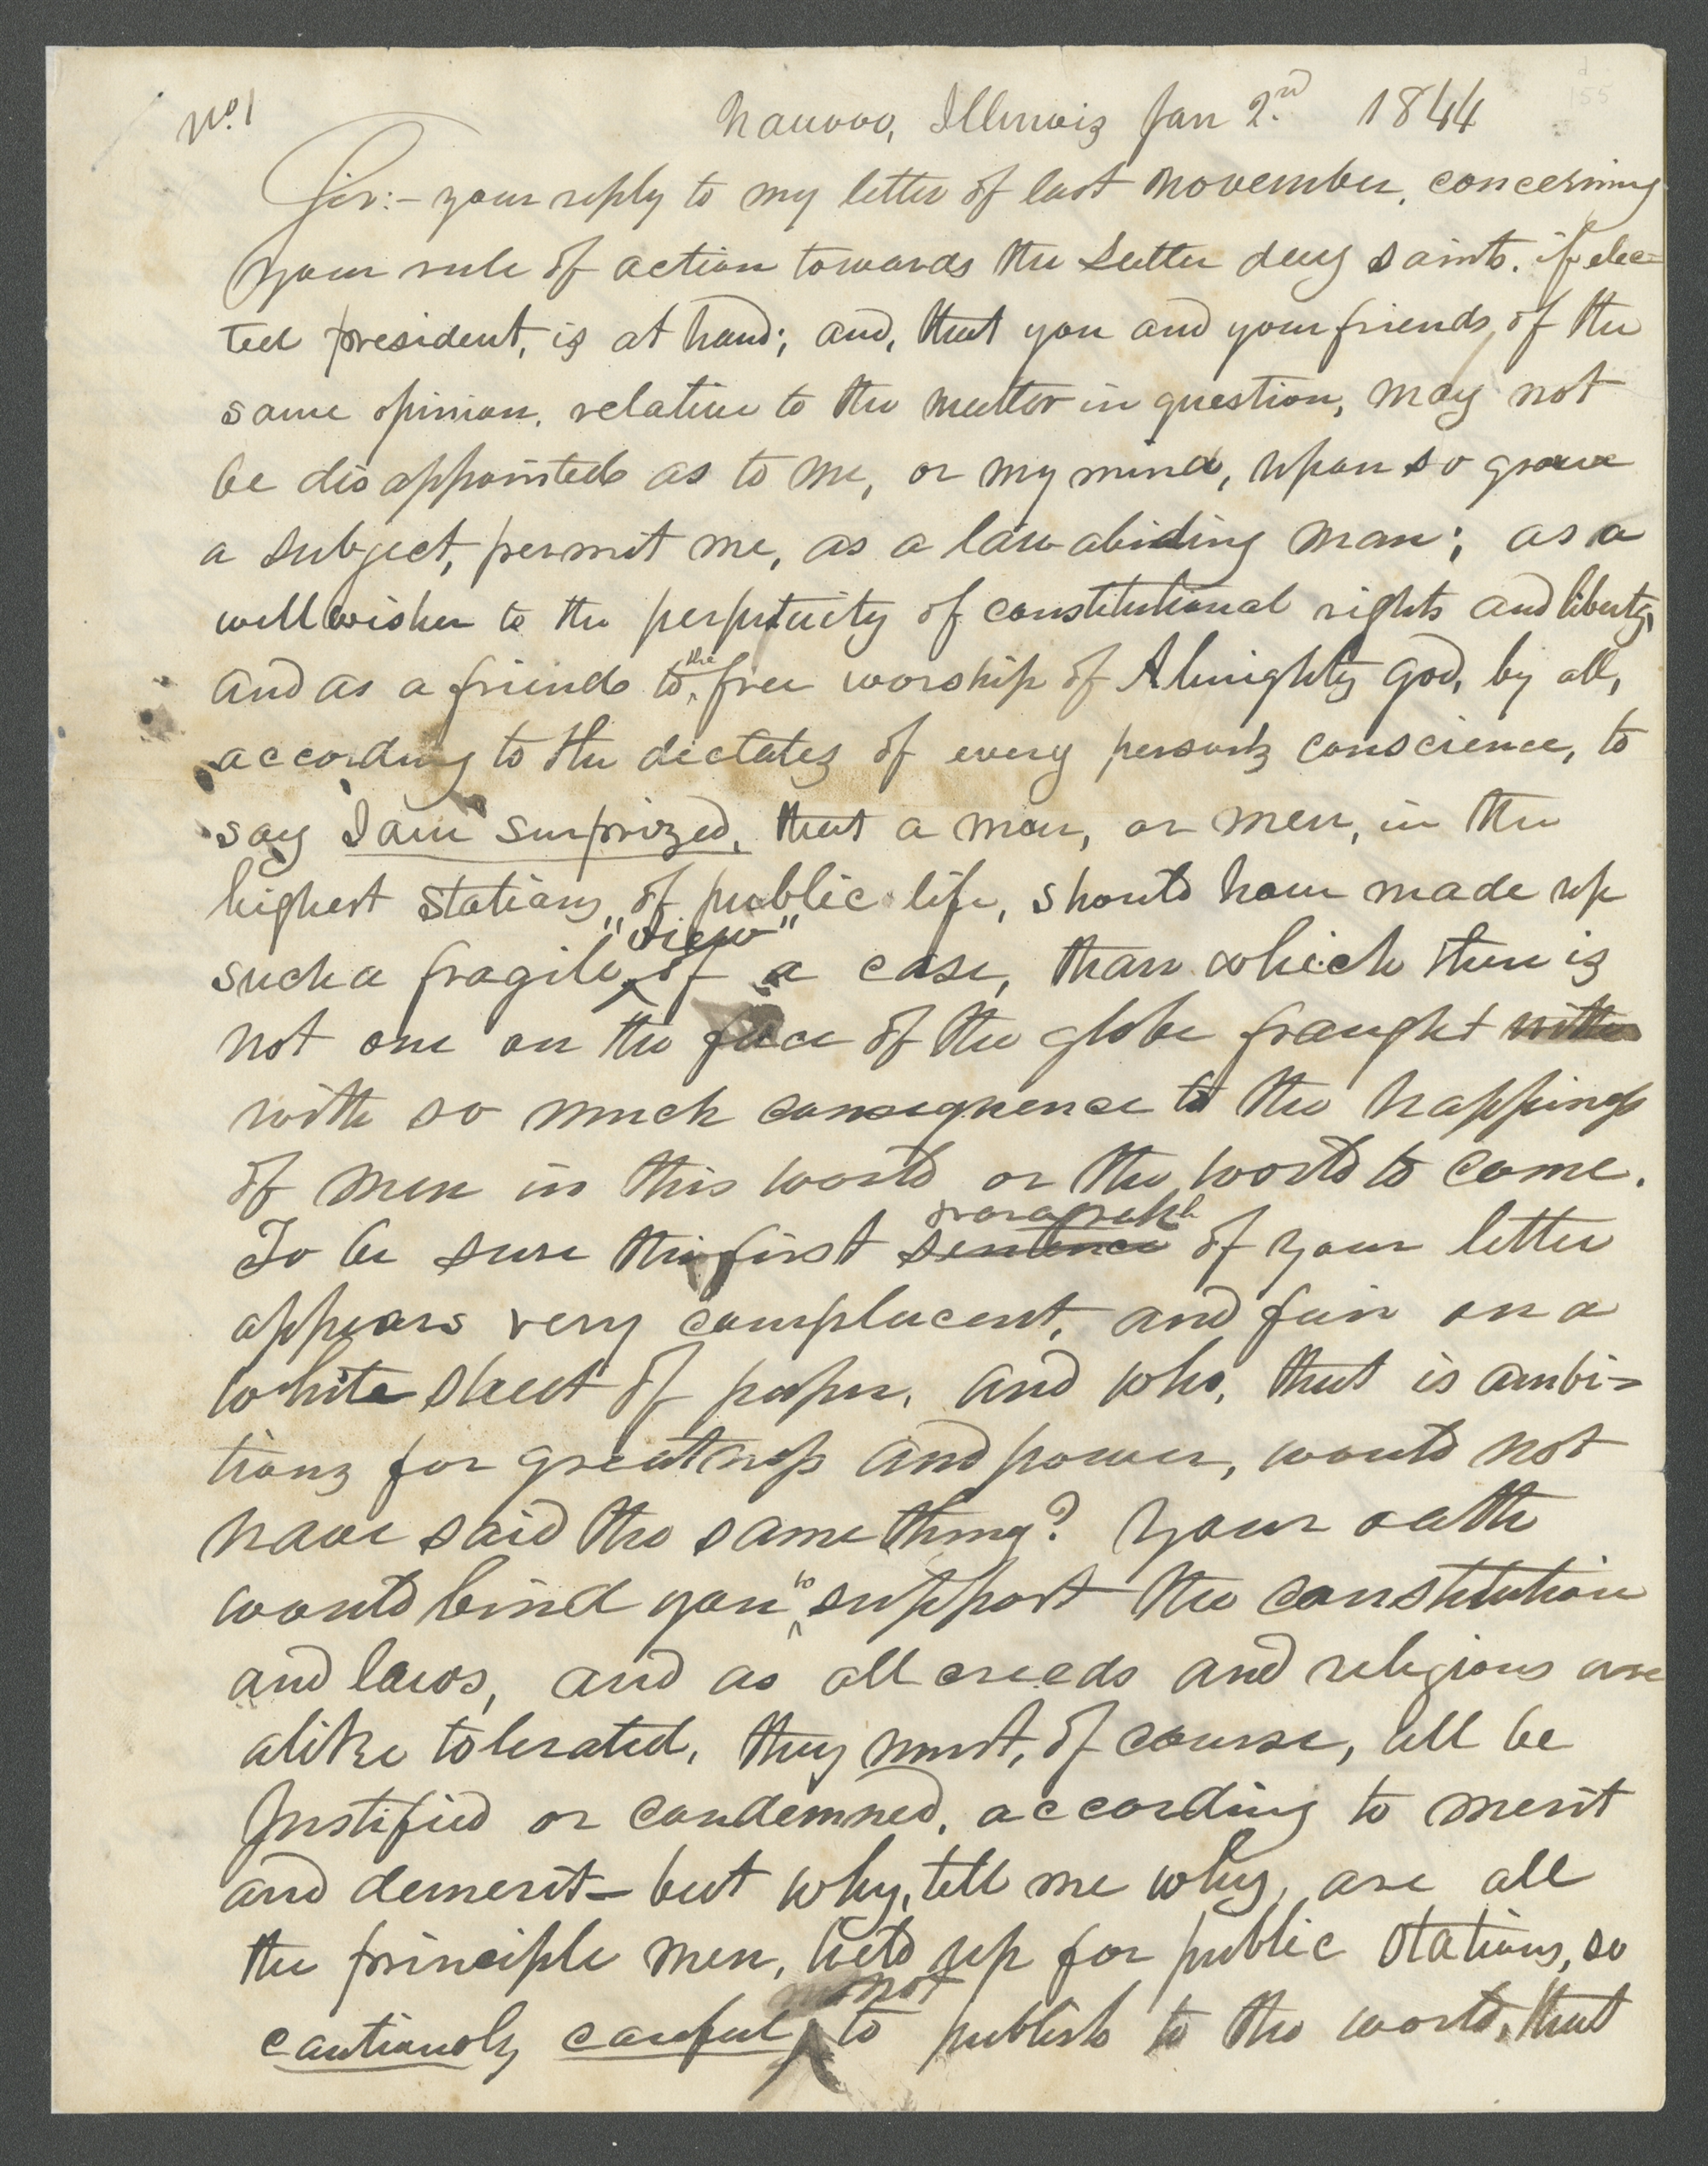 No. 1
Nauvoo, Illinois Jan 2.nd 1844
Sir:- your reply to my letter of last November, concerning
your rule of action towards the Latter day saints, if elec=
ted president, is at hand; and, that you and your friends, of the
same opinion, relative to the matter in question, may not
be disappointed as to me, or my mind, upon so grave
a subject, permit me, as a law abiding man; as a
well wisher to the perpetuity of constitutional rights and liberty,
and as a friend to the free worship of Almighty God, by all,
according to the dictates of every person's conscience, to
say I am surprized, that a man, or men, in the
highest stations of public life, should have made up
such a fragile "view" of a case, than which there is
not one on the face of the globe fraught with
with so much consequence to the happiness
of men in this world or the world to come.
To be sure the first sentence paragraph of your letter
appears very complacent, and fair on a
white sheet of paper, and who, that is ambi=
tious for greatness and power, would not
have said the same thing? Your oath
would bind you to support the constitution
and laws, and as all creeds and religions are
alike tolerated, they must, of course, all be
justified or condemned, according to merit
and demerit—but why, tell me why, are all
the principle men, held up for public stations, so
cautiously careful not to publish to the world, that